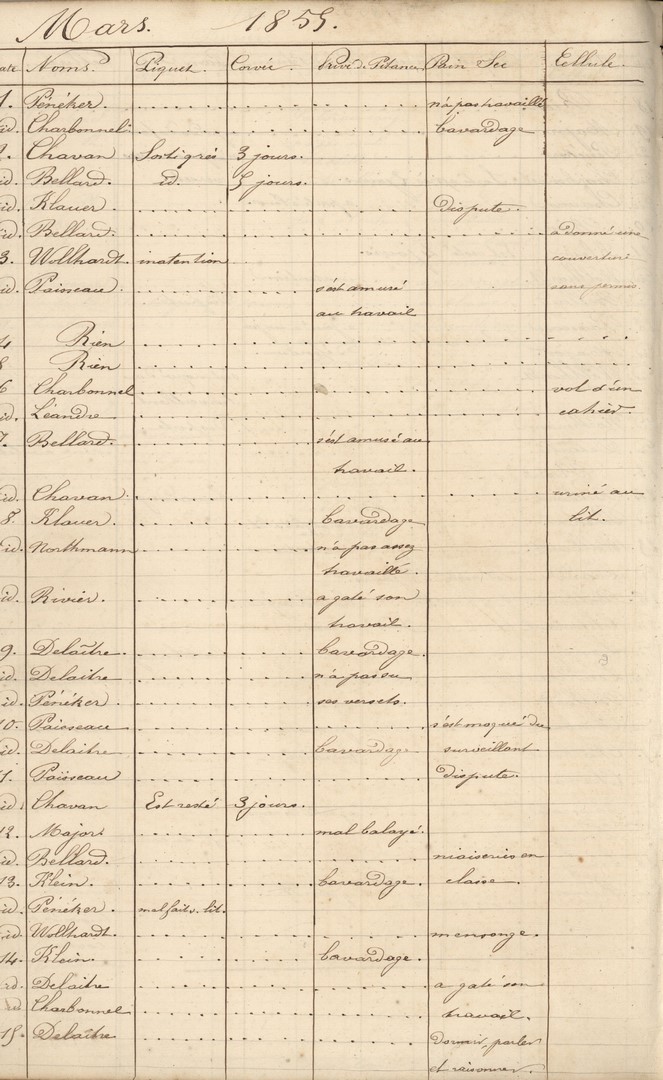 Mars. 1855.
ate Noms. Piquet. Corvée. Privé de Pitance. Pain Sec Cellule.
1. Pénéker. n'a pas travaillé
id. Charbonnel. bavardage
2. Chavan Sorti grés 3 jours.
id. Bellard. id. 5 jours.
id. Klauer dispute.
id. Bellard. a donné une
3. Wollhardt. inatention couverture
id. Paisseau. s'est amusé sans permis.
au travail
4 Rien
5 Rien
6 Charbonnel vol d'un
id. Léandre cahier.
7. Bellard. s'est amusé au
travail.
id. Chavan uriné au
8. Klauer bavardage lit.
id. Northmann n'a pas assez
travaillé.
id. Rivier. a gaté son
travail.
9. Delaître. bavardage.
id. Delaitre n'a pas su
id. Pénéker ses versets.
10. Paisseau s'est moqué du
id. Delaitre bavardage surveillant
11. Paisseau dispute.
id Chavan Est resté 3 jours.
12. Major. mal balayé.
id. Bellard. niaiseries en
13. Klein. bavardage. classe.
id. Pénéker mal fait s. lit.
id. Wollhardt. mensonge.
14. Klein. bavardage.
id. Delaitre a gaté son
id Charbonnel travail.
15. Delaître Dormir, parler
et raisonner.